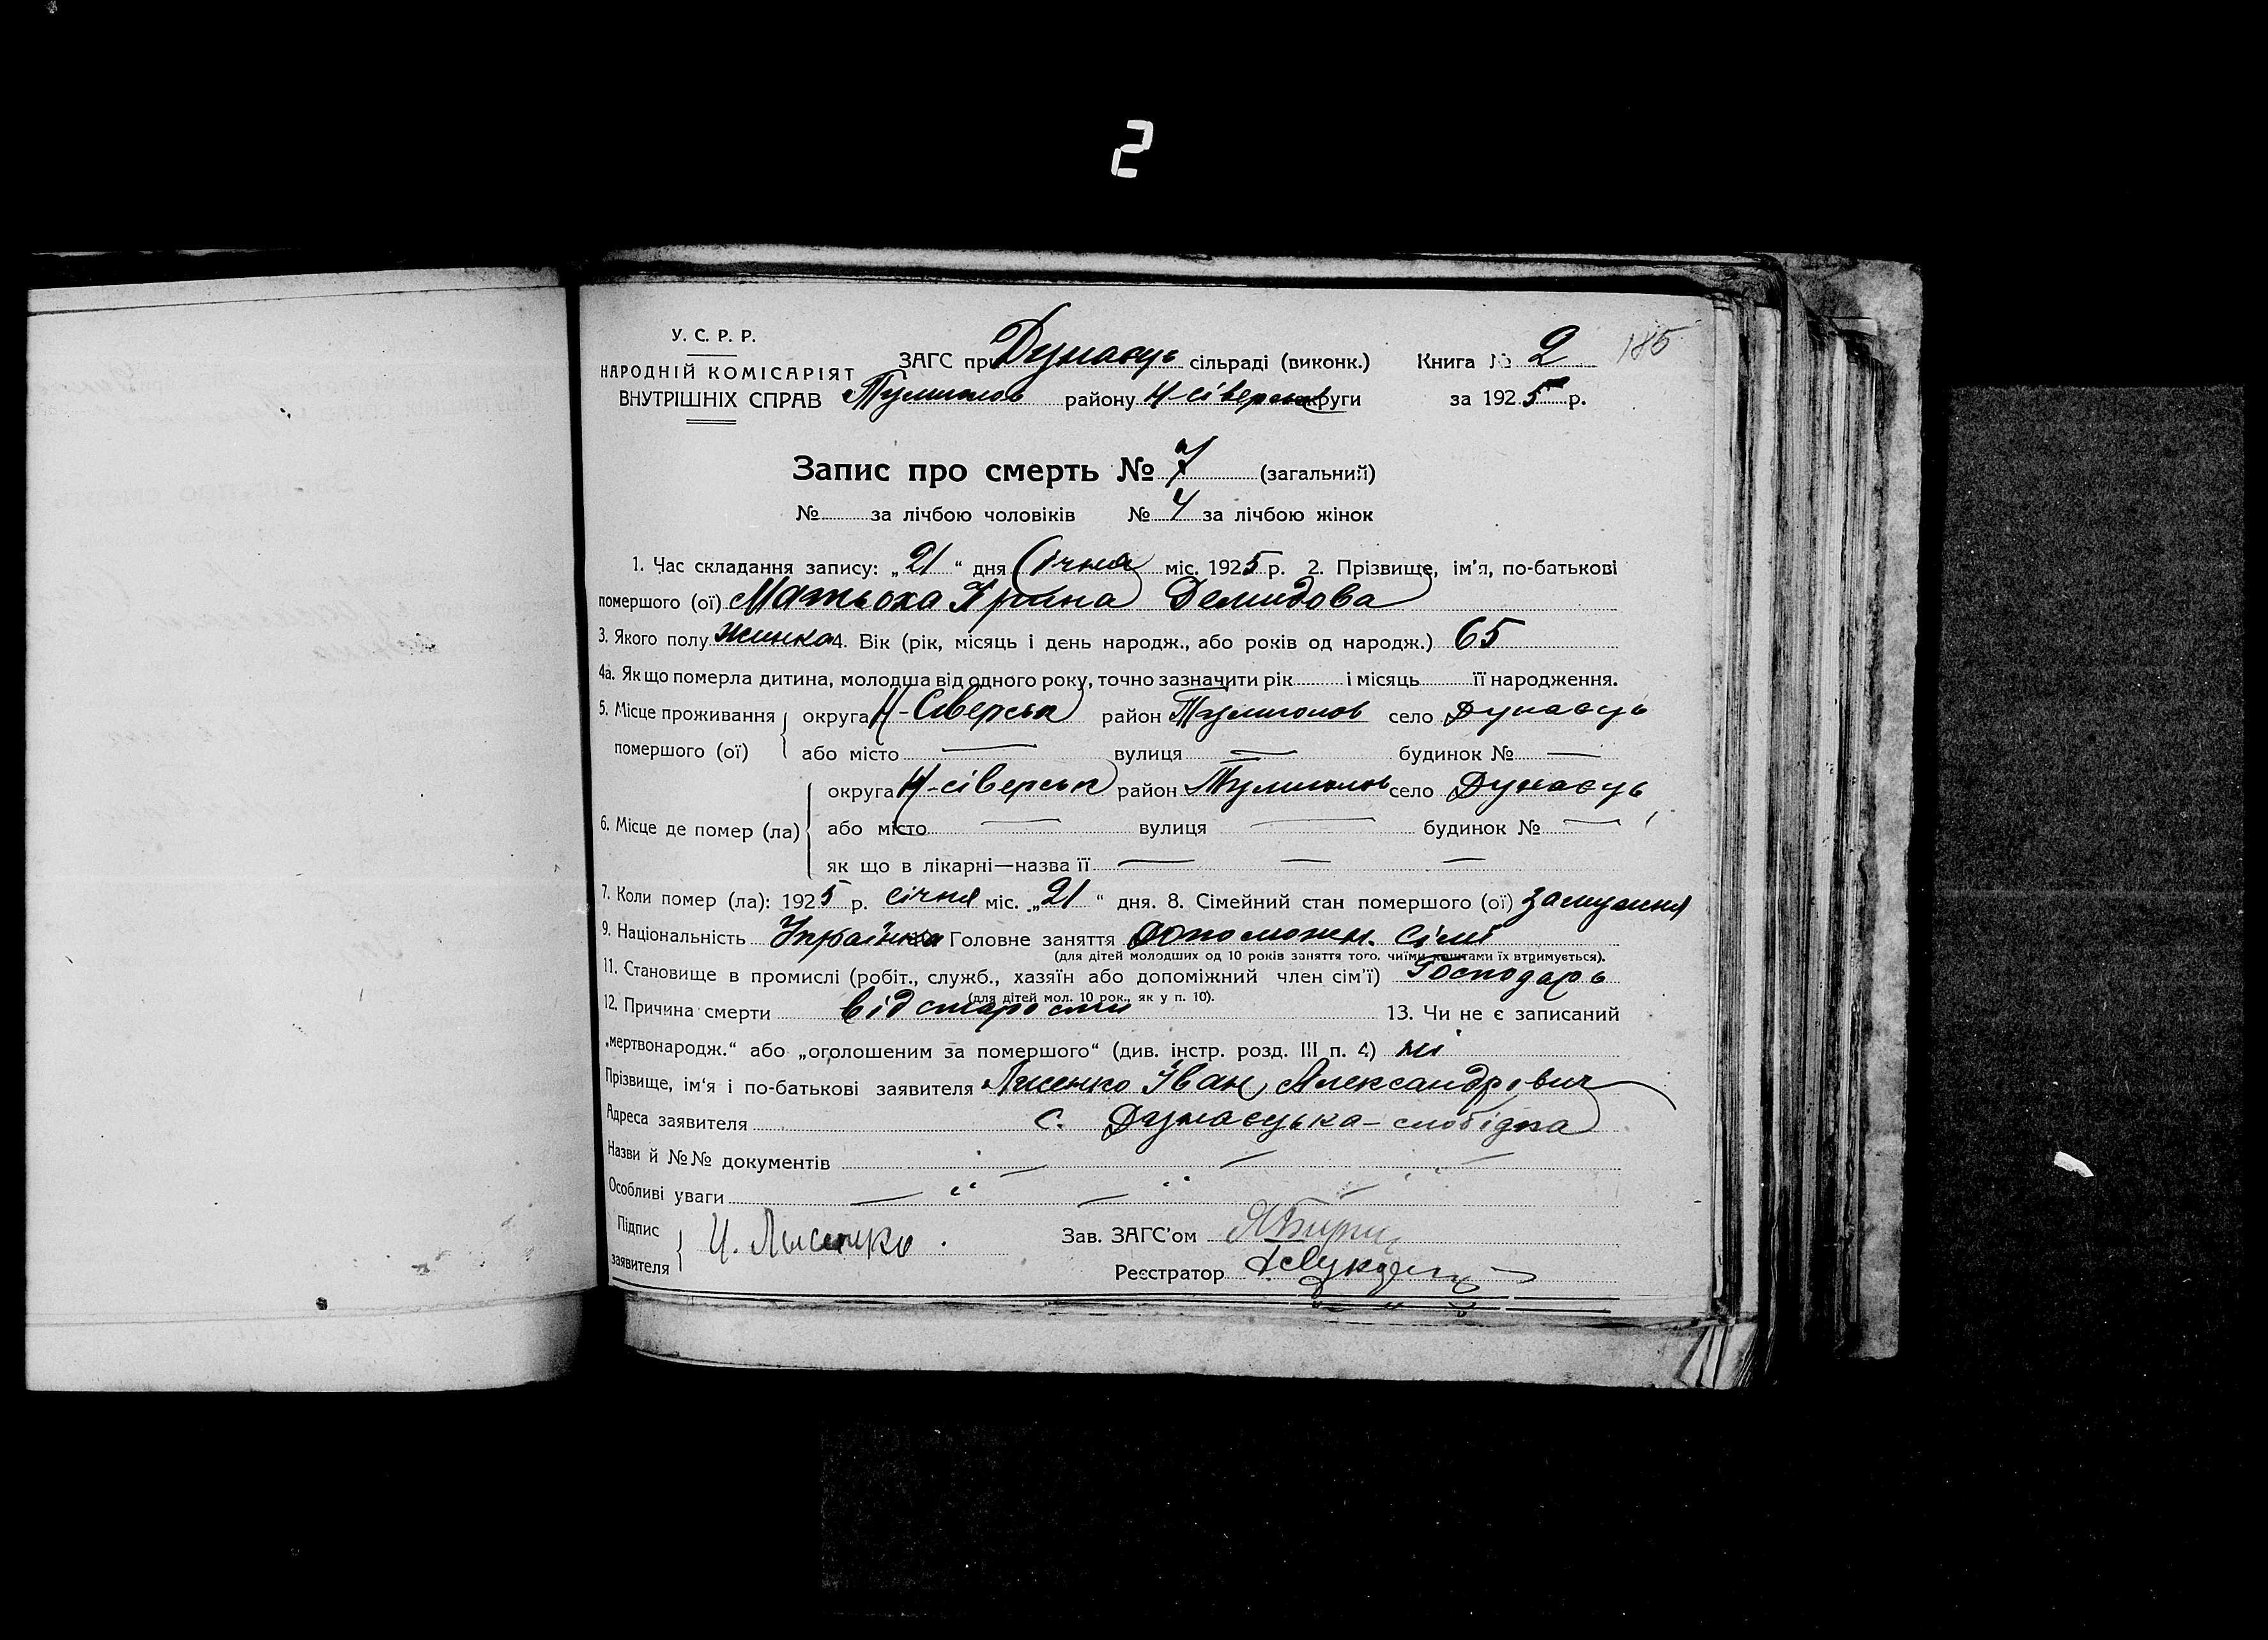 2
У. С. Р. Р.
НАРОДНІЙ КОМІСАРІЯТ
ВНУТРІШНІХ СПРАВ
ЗАГС при Дунаєць сільраді (виконк.) Книга № 2 185
Тулиголов району Н-Сіверськ округи за 1925 р.
Запис про смерть № 7 (загальний)
№ за лічбою чоловіків № 4 за лічбою жінок
1. Час складання запису: „21“ дня Січня міс. 1925 р. 2. Прізвище, ім'я, по-батькові
помершого (ої) Матьоха Ірина Демидова
3. Якого полу жинка 4. Вік (рік, місяць і день народж., або років од народж.) 65
4а. Як що померла дитина, молодша від одного року, точно зазначити рік і місяць її народження.
5. Місце проживання помершого (ої) округа Н-Сіверськ район Тулиголов село Дунаєць
або місто — вулиця — будинок № —
6. Місце де помер (ла) округа Н-сіверськ район Тулиголов село Дунаєць
або місто — вулиця — будинок № —
як що в лікарні—назва її — — —
7. Коли помер (ла): 1925 р. січня міс. „21“ дня. 8. Сімейний стан помершого (ої) замужня
9. Національність Українка Головне заняття допоможн. сімї
(для дітей молодших од 10 років заняття того, чиїми коштами їх втримується).
11. Становище в промислі (робіт., служб., хазяїн або допоміжний член сім'ї) Господарь
(для дітей мол. 10 рок., як у п. 10).
12. Причина смерти від старости 13. Чи не є записаний
„мертвонародж.“ або „оголошеним за помершого“ (див. інстр. розд. III п. 4) ні
Прізвище, ім'я і по-батькові заявителя Лисенко Іван Александрович
Адреса заявителя с. Дунаєцька-слобідка
Назви й №№ документів — — —
Особливі уваги — „ — „ —
Підпис заявителя И. Лисенко.
Зав. ЗАГС'ом
Реєстратор